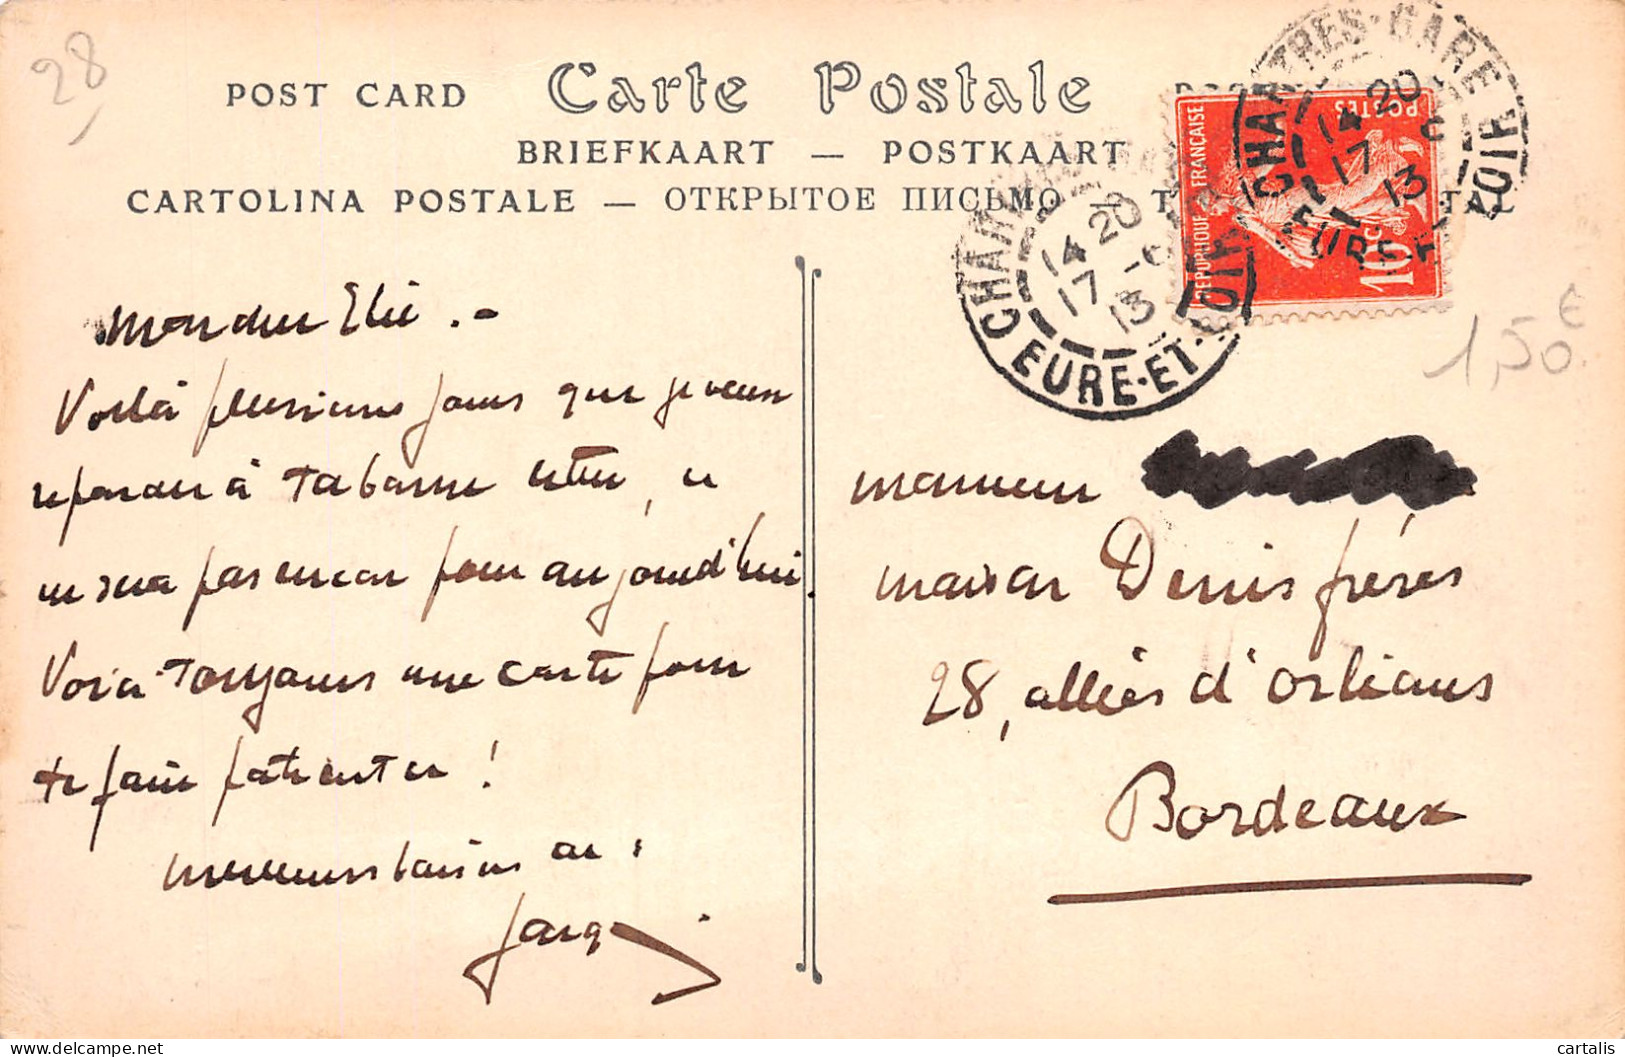 28
POST CARD Carte Postale
BRIEFKAART — POSTKAART
CARTOLINA POSTALE — ОТКРЫТОЕ ПИСЬМО —
CHARTRES-GARE
EURE-ET-LOIR
14 20
17 - 6
13
CHARTRES-GARE
EURE-ET-LOIR
14 20
17 - 6
13
REPUBLIQUE FRANCAISE
POSTES
10c
1,50 €
Mon cher Elie . -
Voilà plusieurs jours que je veux
repondre à ta bonne lettre, ce
ne sera pas encor pour aujourd'hui
Voici toujours une carte pour
te faire patienter !
baisers
Jacq
monsieur
maison Denis frères
28, allées d'Orléans
Bordeaux
cartalis